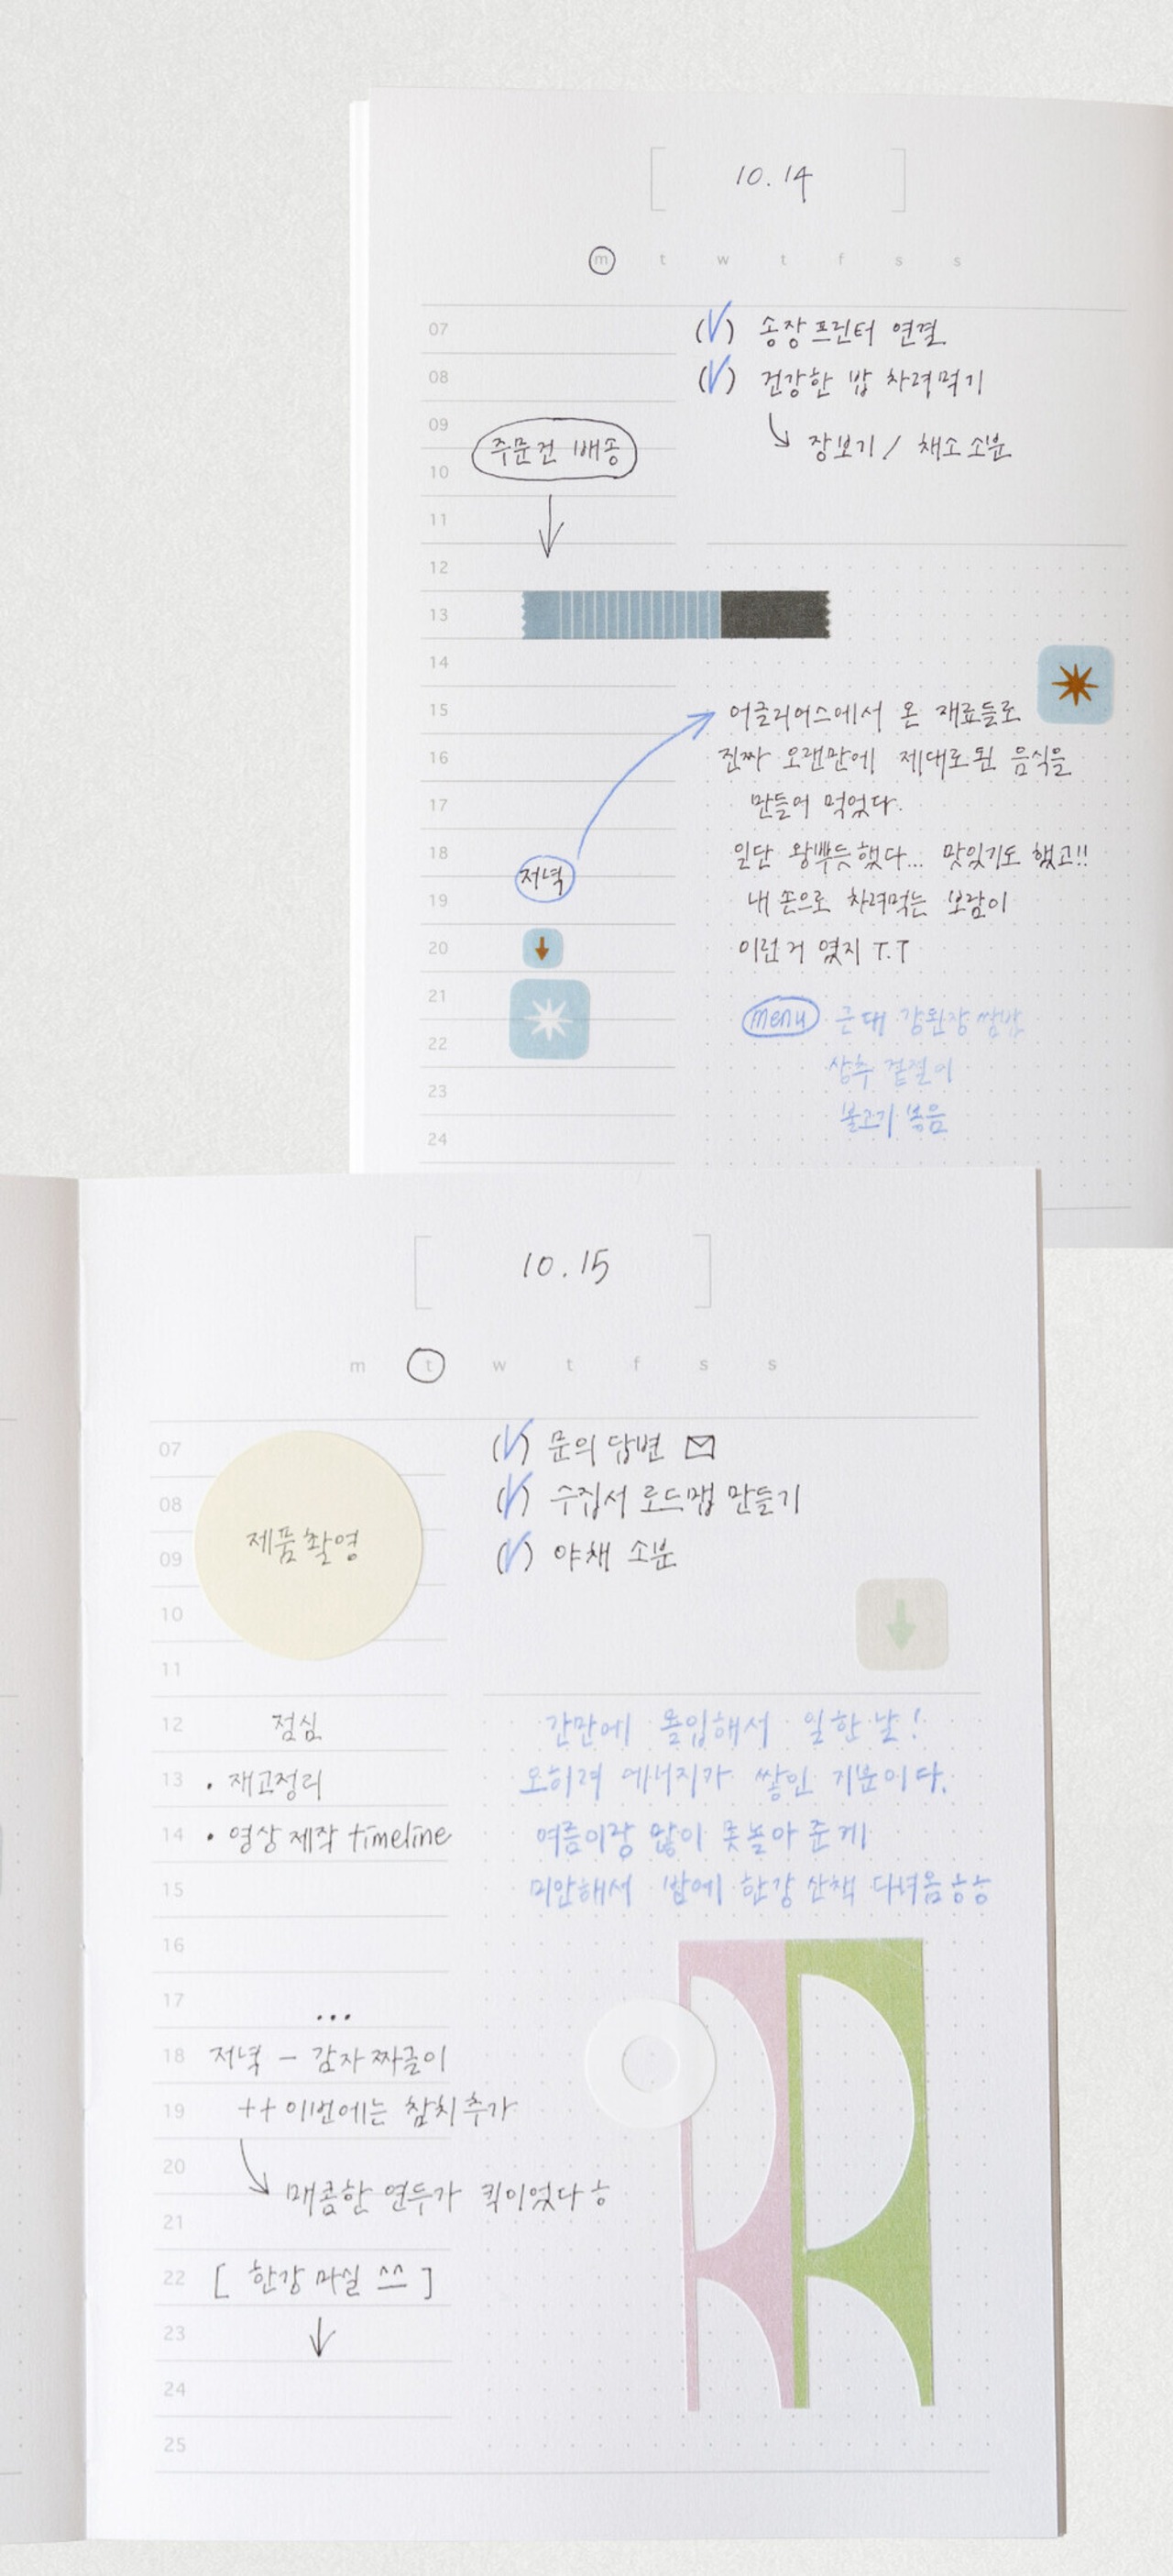 10.14
m t w t f s s
07
(V) 송장프린터 연결
08
(V) 건강한 밥 차려먹기
09
주문건 배송
장보기 / 채소소분
10
11
12
13
14
15
어글리어스에서 온 재료들로
16
진짜 오랜만에 제대로된 음식을
17
만들어 먹었다.
18
일단 왕뿌듯했다... 맛있기도 했고!!
저녁
19
내 손으로 차려먹는 보람이
20
이런거 였지 T.T
21
menu 근대 강된장 쌈밥
22
상추 겉절이
23
불고기 볶음
24
10.15
m t w t f s s
07
(V) 문의 답변
08
(V) 수집서 로드맵 만들기
09
제품촬영
(V) 야채 소분
10
11
12
점심
간만에 몰입해서 일한 날!
13
• 재고정리
오히려 에너지가 쌓인 기분이다.
14
• 영상 제작 timeline
여름이랑 많이 못놀아 준게
15
미안해서 밤에 한강 산책 다녀옴ㅎㅎ
16
17
...
18
저녁 - 감자 짜글이
19
++ 이번에는 참치추가
20
매콤한 연두가 킥이었다ㅎ
21
22
[ 한강 마실 ^^ ]
23
24
25